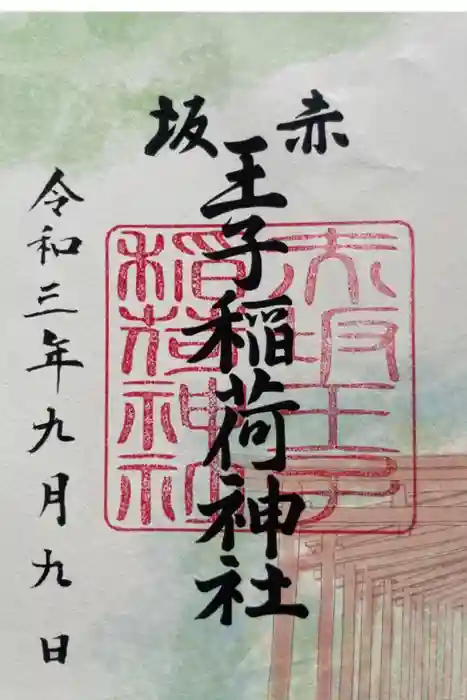 赤坂
王子稲荷神社
令和三年九月九日
赤坂王子
稲荷神社